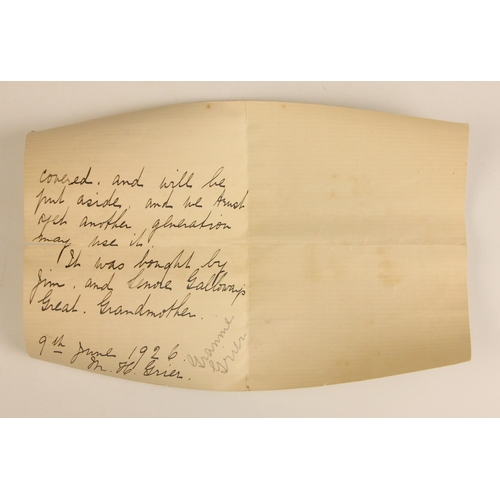 covered. and will be
put aside, and we trust
yet another generation
may use it.
It was bought by
Jim. and Lenore Galloway's
Great. Grandmother.
9th June 1926.
M. H. Grier.
Grannie
Grier